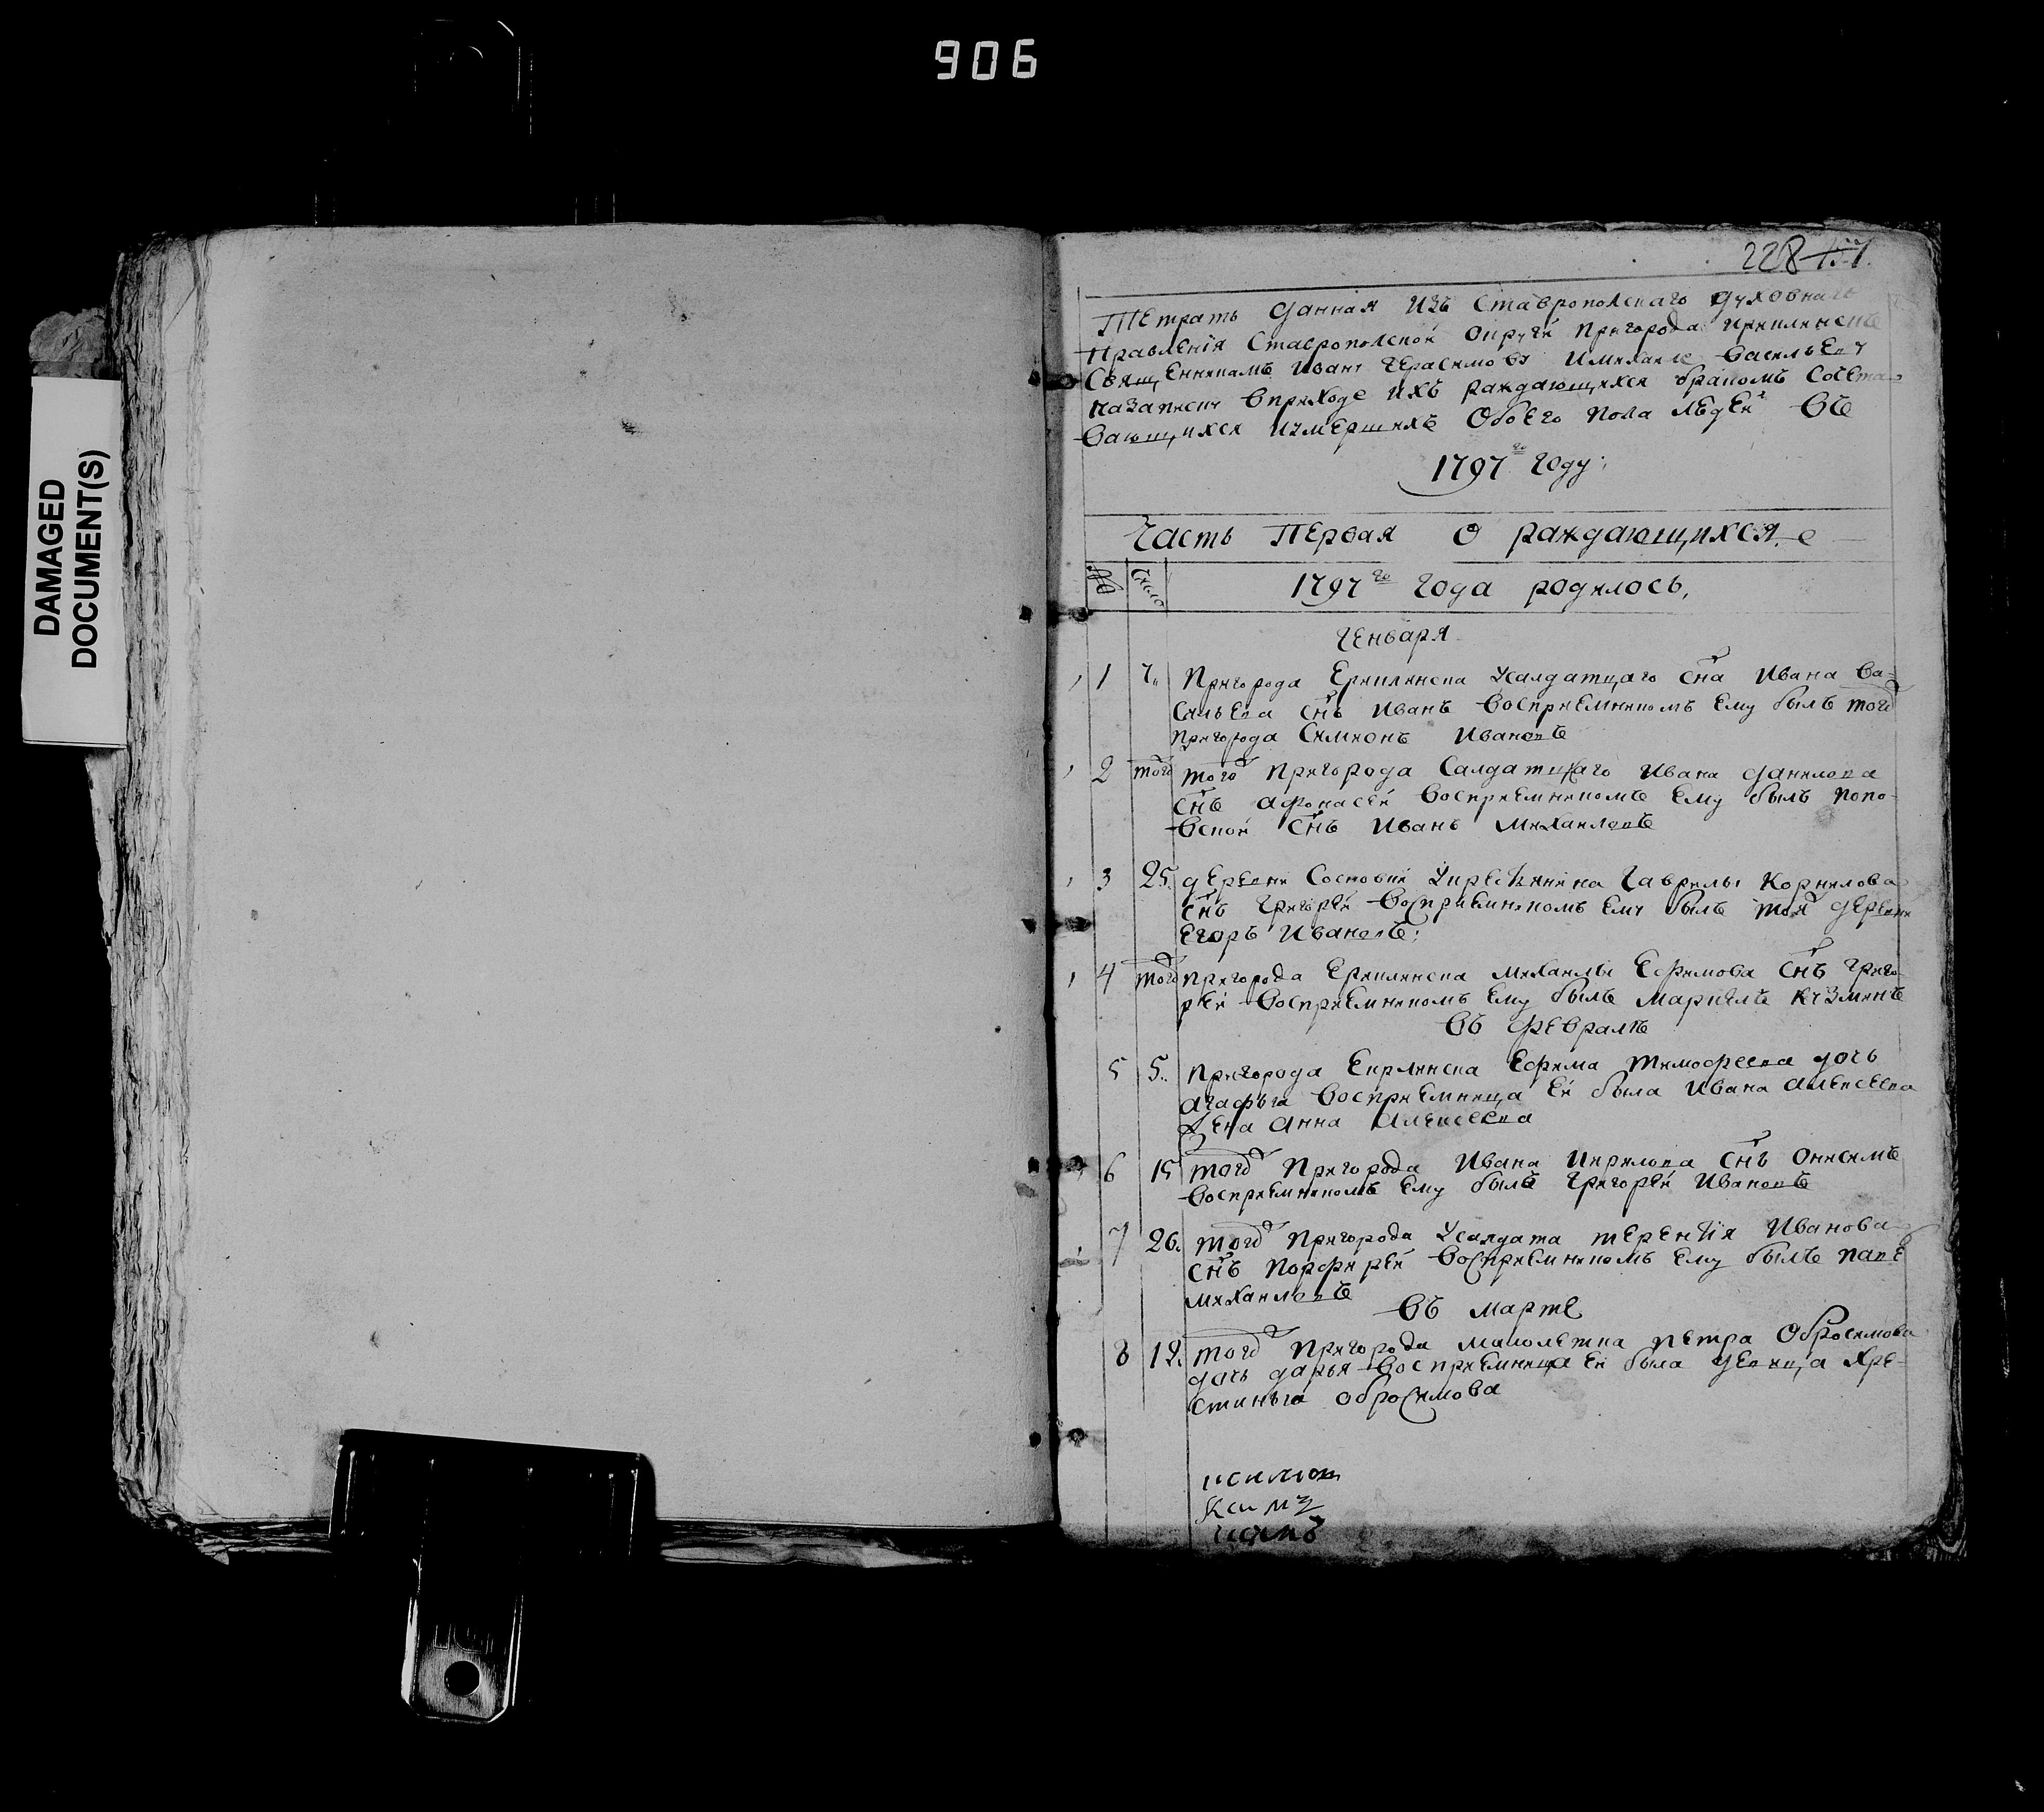 906
DAMAGED
DOCUMENT(S)
228
Тетрать данная изъ Ставропольскаго духовнаго
правления Ставрополской округи пригорода
Священникамъ Ивану Герасимову Имихаиле Васильеву
назаписку вприходе ихъ раждающихся бракомъ Сочета-
вающихся Иумершихъ Обоего пола людей Въ
1797го году:
Часть Первая О раждающихся
№ Число 1797го года родилось,
Генваря
1 7 Пригорода Ериклинска Усалдатцаго сна Ивана Ва-
сильева снъ Иванъ Восприемникомъ Ему былъ того
пригорода Симионъ Ивановъ
2 того того Пригорода Салдатцкаго Ивана Данилова
снъ Афонасей Восприемникомъ Ему былъ попо-
вской снъ Иванъ Михаиловъ
3 25. деревни Сосновки Укрестьянина Гаврилы Корнилова
снъ Григорей Восприемникомъ Ему былъ тоя деревни
Егоръ Ивановъ:
4 того пригорода Ериклинска Михаилы Ефимова снъ Григо-
рей Восприемникомъ Ему былъ Маркелъ Кузминъ
Въ Феврале
5 5. Пригорода Ефима Тимофеева дочь
Агафья Восприемница Ей была Ивана Алексеева
Жена Анна Алексеева
6 15 того Пригорода Ивана Кирилова снъ Онисимъ
Восприемникомъ Ему былъ Григорей Ивановъ
7 26. того Пригорода Усалдата терентия Иванова
снъ Порфирей Восприемникомъ Ему былъ
Михаиловъ
Въ Марте
8 12. того Пригорода малолетка Петра Обросимова
дочь дарья Восприемница Ей была девица Хре-
стинья обросимова